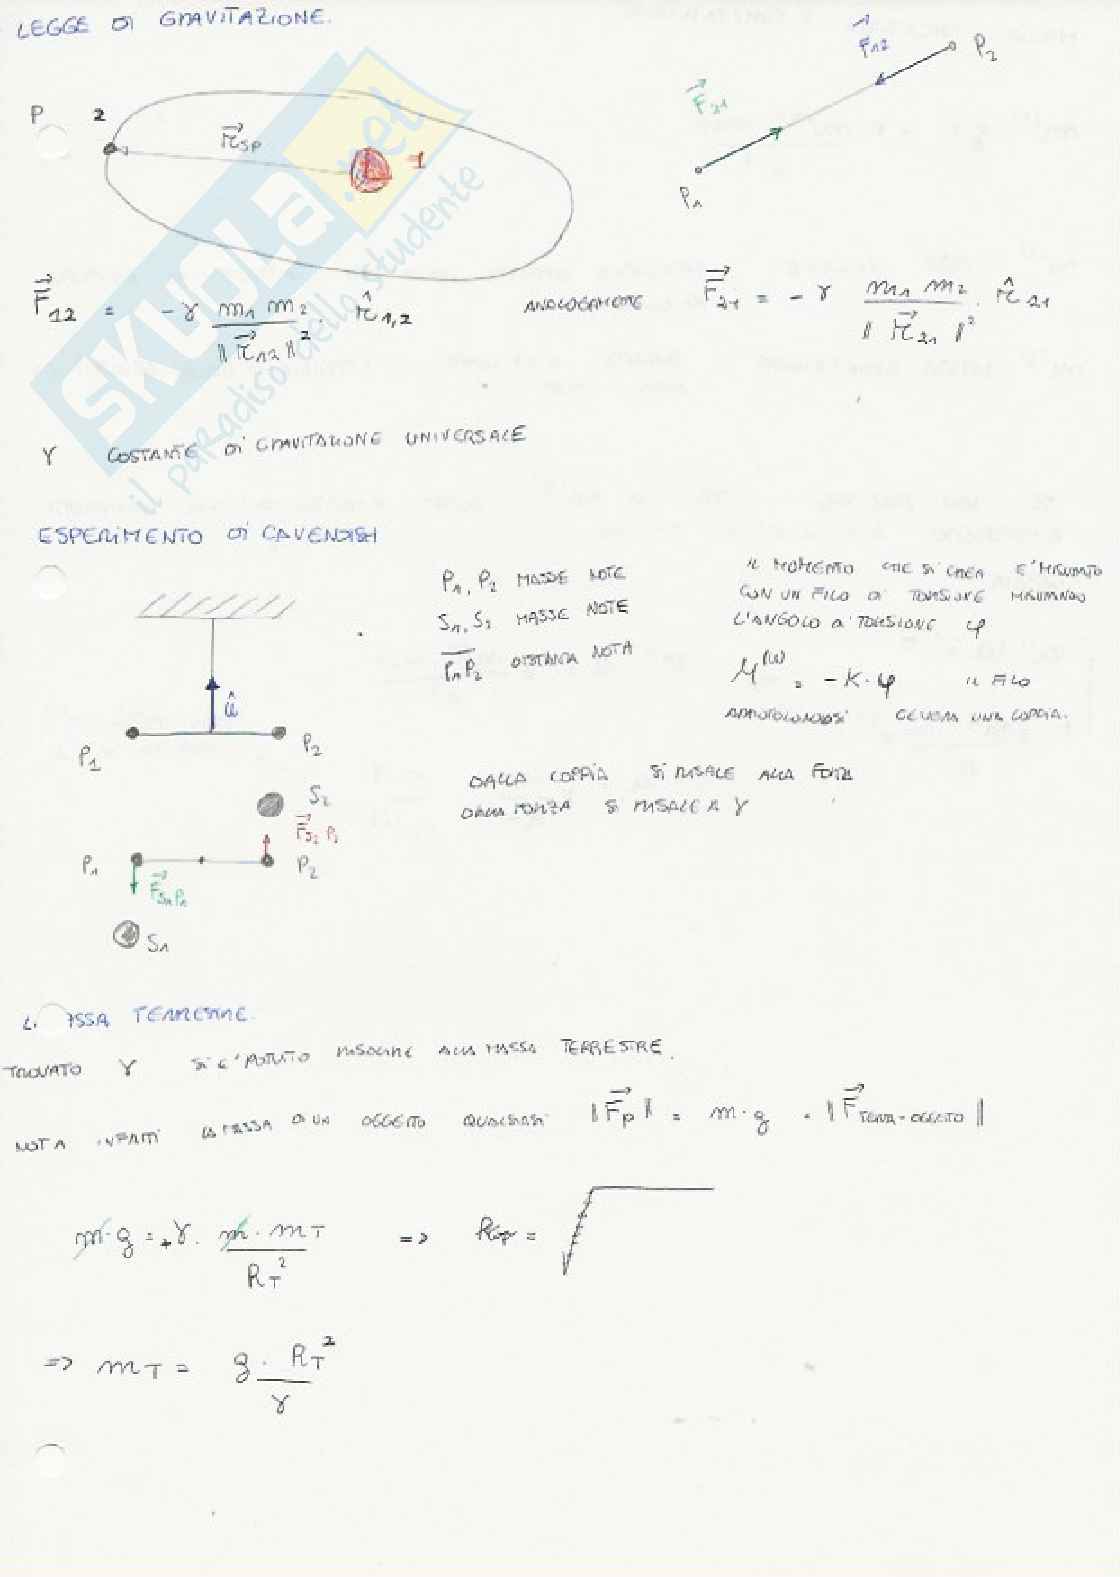 LEGGE DI GRAVITAZIONE.
P 2 r⃗SP 1
F⃗12 P2
F⃗21
P1
F⃗12 = - γ m1 m2 / ‖r⃗12‖² · r̂1,2 ANALOGAMENTE F⃗21 = - γ m1 m2 / ‖r⃗21‖² · r̂21
γ COSTANTE DI GRAVITAZIONE UNIVERSALE
ESPERIMENTO DI CAVENDISH
P1, P2 MASSE NOTE
S1, S2 MASSE NOTE
P1P2 DISTANZA NOTA
IL MOMENTO CHE SI CREA E' MISURATO
CON UN FILO DI TORSIONE MISURANDO
L'ANGOLO DI TORSIONE φ
= -K·φ IL FILO
GENERA UNA COPPIA.
û
P1 P2
DALLA COPPIA SI RISALE ALLA FORZA
DALLA FORZA SI RISALE A γ
S2
F⃗S2P2
P1 P2
F⃗S1P1
S1
MASSA TERRESTRE.
TROVATO γ SI E' POTUTO RISALIRE ALLA MASSA TERRESTRE.
NOTA INFATTI LA MASSA DI UN OGGETTO QUALSIASI ‖F⃗P‖ = m·g = ‖F⃗TERRA-OGGETTO‖
m·g = +γ · m · mT / RT² =>
=> mT = g · RT² / γ
SKUOLA.net
il paradiso dello studente